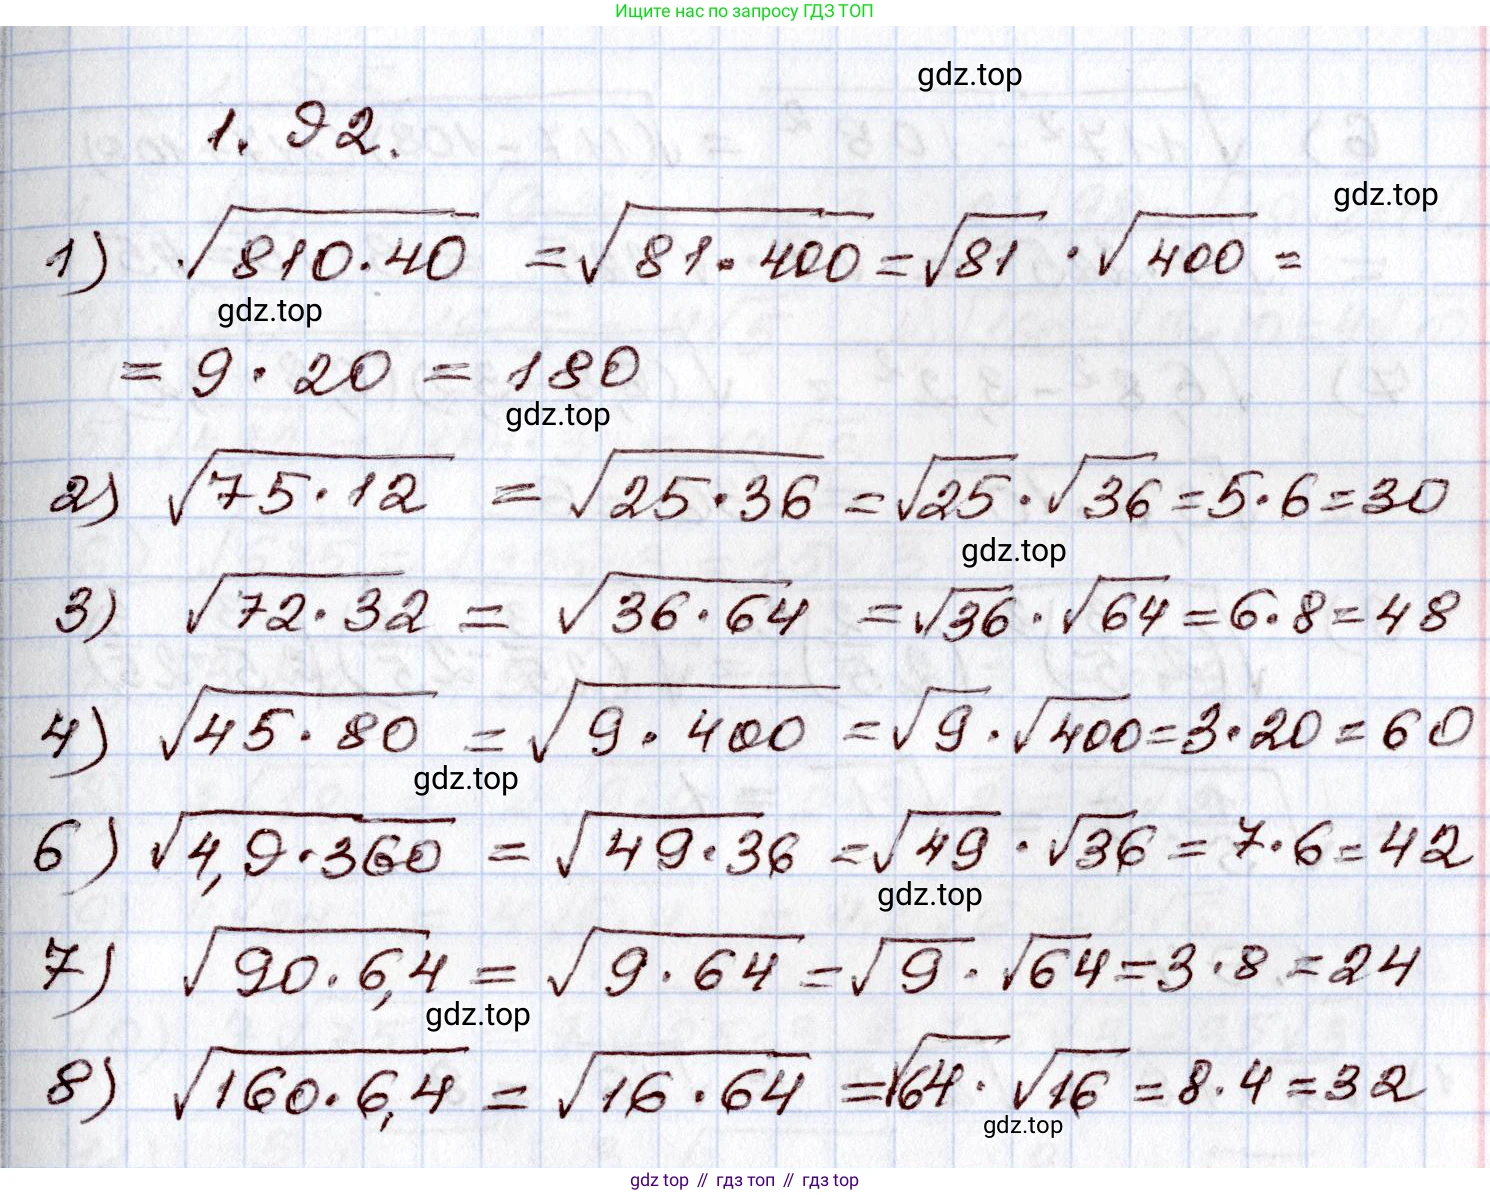 Ищите нас по запросу ГДЗ ТОП
gdz.top
1.92.
gdz.top
1) √810·40 = √81·400 = √81 · √400 =
gdz.top
= 9·20 = 180
gdz.top
2) √75·12 = √25·36 = √25·√36 = 5·6 = 30
gdz.top
3) √72·32 = √36·64 = √36·√64 = 6·8 = 48
4) √45·80 = √9·400 = √9·√400 = 3·20 = 60
gdz.top
6) √4,9·360 = √49·36 = √49·√36 = 7·6 = 42
gdz.top
7) √90·6,4 = √9·64 = √9·√64 = 3·8 = 24
gdz.top
8) √160·6,4 = √16·64 = √64·√16 = 8·4 = 32
gdz.top
gdz top // гдз топ // гдз top